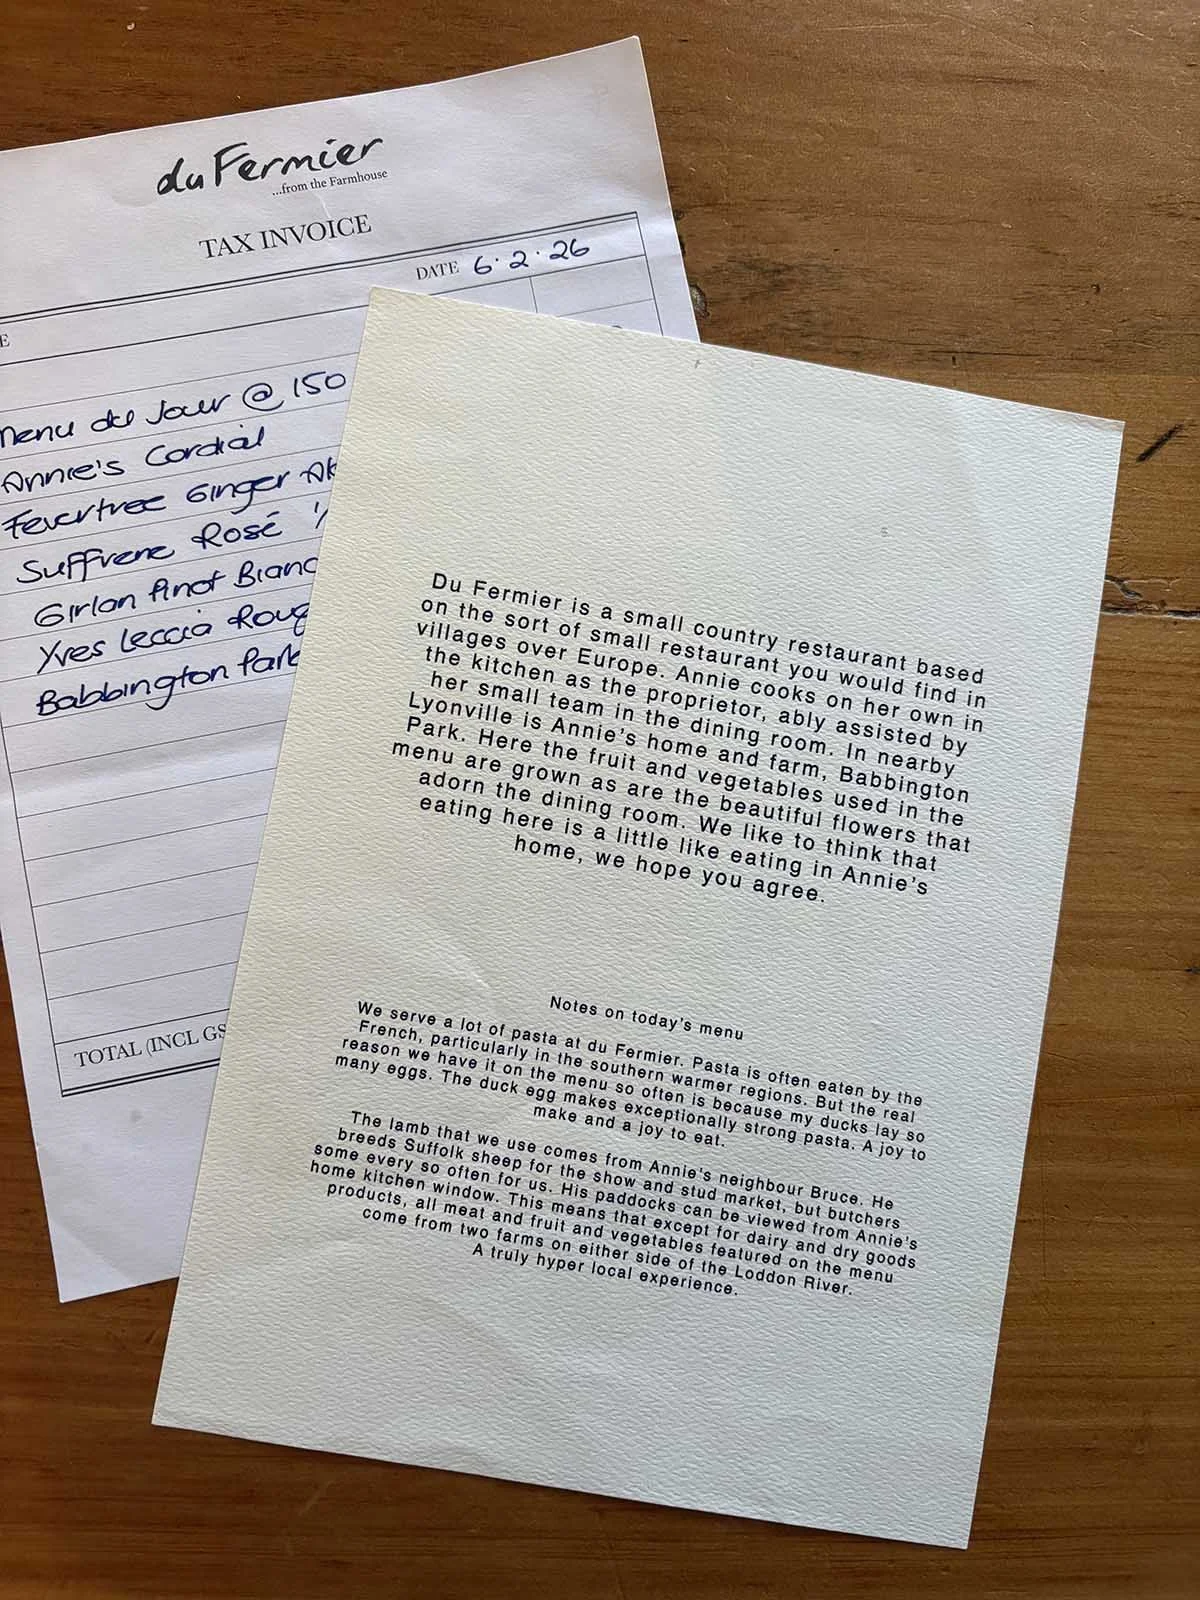 du Fermier
...from the Farmhouse
TAX INVOICE
DATE 6.2.26
Menu du Jour @ 150
Annie's Cordial
Fevertree Ginger
Suffrene Rosé
Girlan Pinot
Yves Leccia
Babbington Park
TOTAL (INCL
Du Fermier is a small country restaurant based
on the sort of small restaurant you would find in
villages over Europe. Annie cooks on her own in
the kitchen as the proprietor, ably assisted by
her small team in the dining room. In nearby
Lyonville is Annie's home and farm, Babbington
Park. Here the fruit and vegetables used in the
menu are grown as are the beautiful flowers that
adorn the dining room. We like to think that
eating here is a little like eating in Annie's
home, we hope you agree.
Notes on today's menu
We serve a lot of pasta at du Fermier. Pasta is often eaten by the
French, particularly in the southern warmer regions. But the real
reason we have it on the menu so often is because my ducks lay so
many eggs. The duck egg makes exceptionally strong pasta. A joy to
make and a joy to eat.
The lamb that we use comes from Annie's neighbour Bruce. He
breeds Suffolk sheep for the show and stud market, but butchers
some every so often for us. His paddocks can be viewed from Annie's
home kitchen window. This means that except for dairy and dry goods
products, all meat and fruit and vegetables featured on the menu
come from two farms on either side of the Loddon River.
A truly hyper local experience.